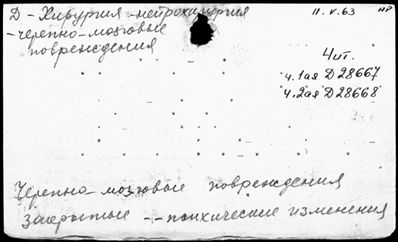 Д - Хирургия - нейрохирургия 11.V.63 НР
- черепно-мозговые
повреждения
Чит.
ч.1ая D28667
ч.2ая D28668
Черепно-мозговые повреждения
закрытые -- психические изменения